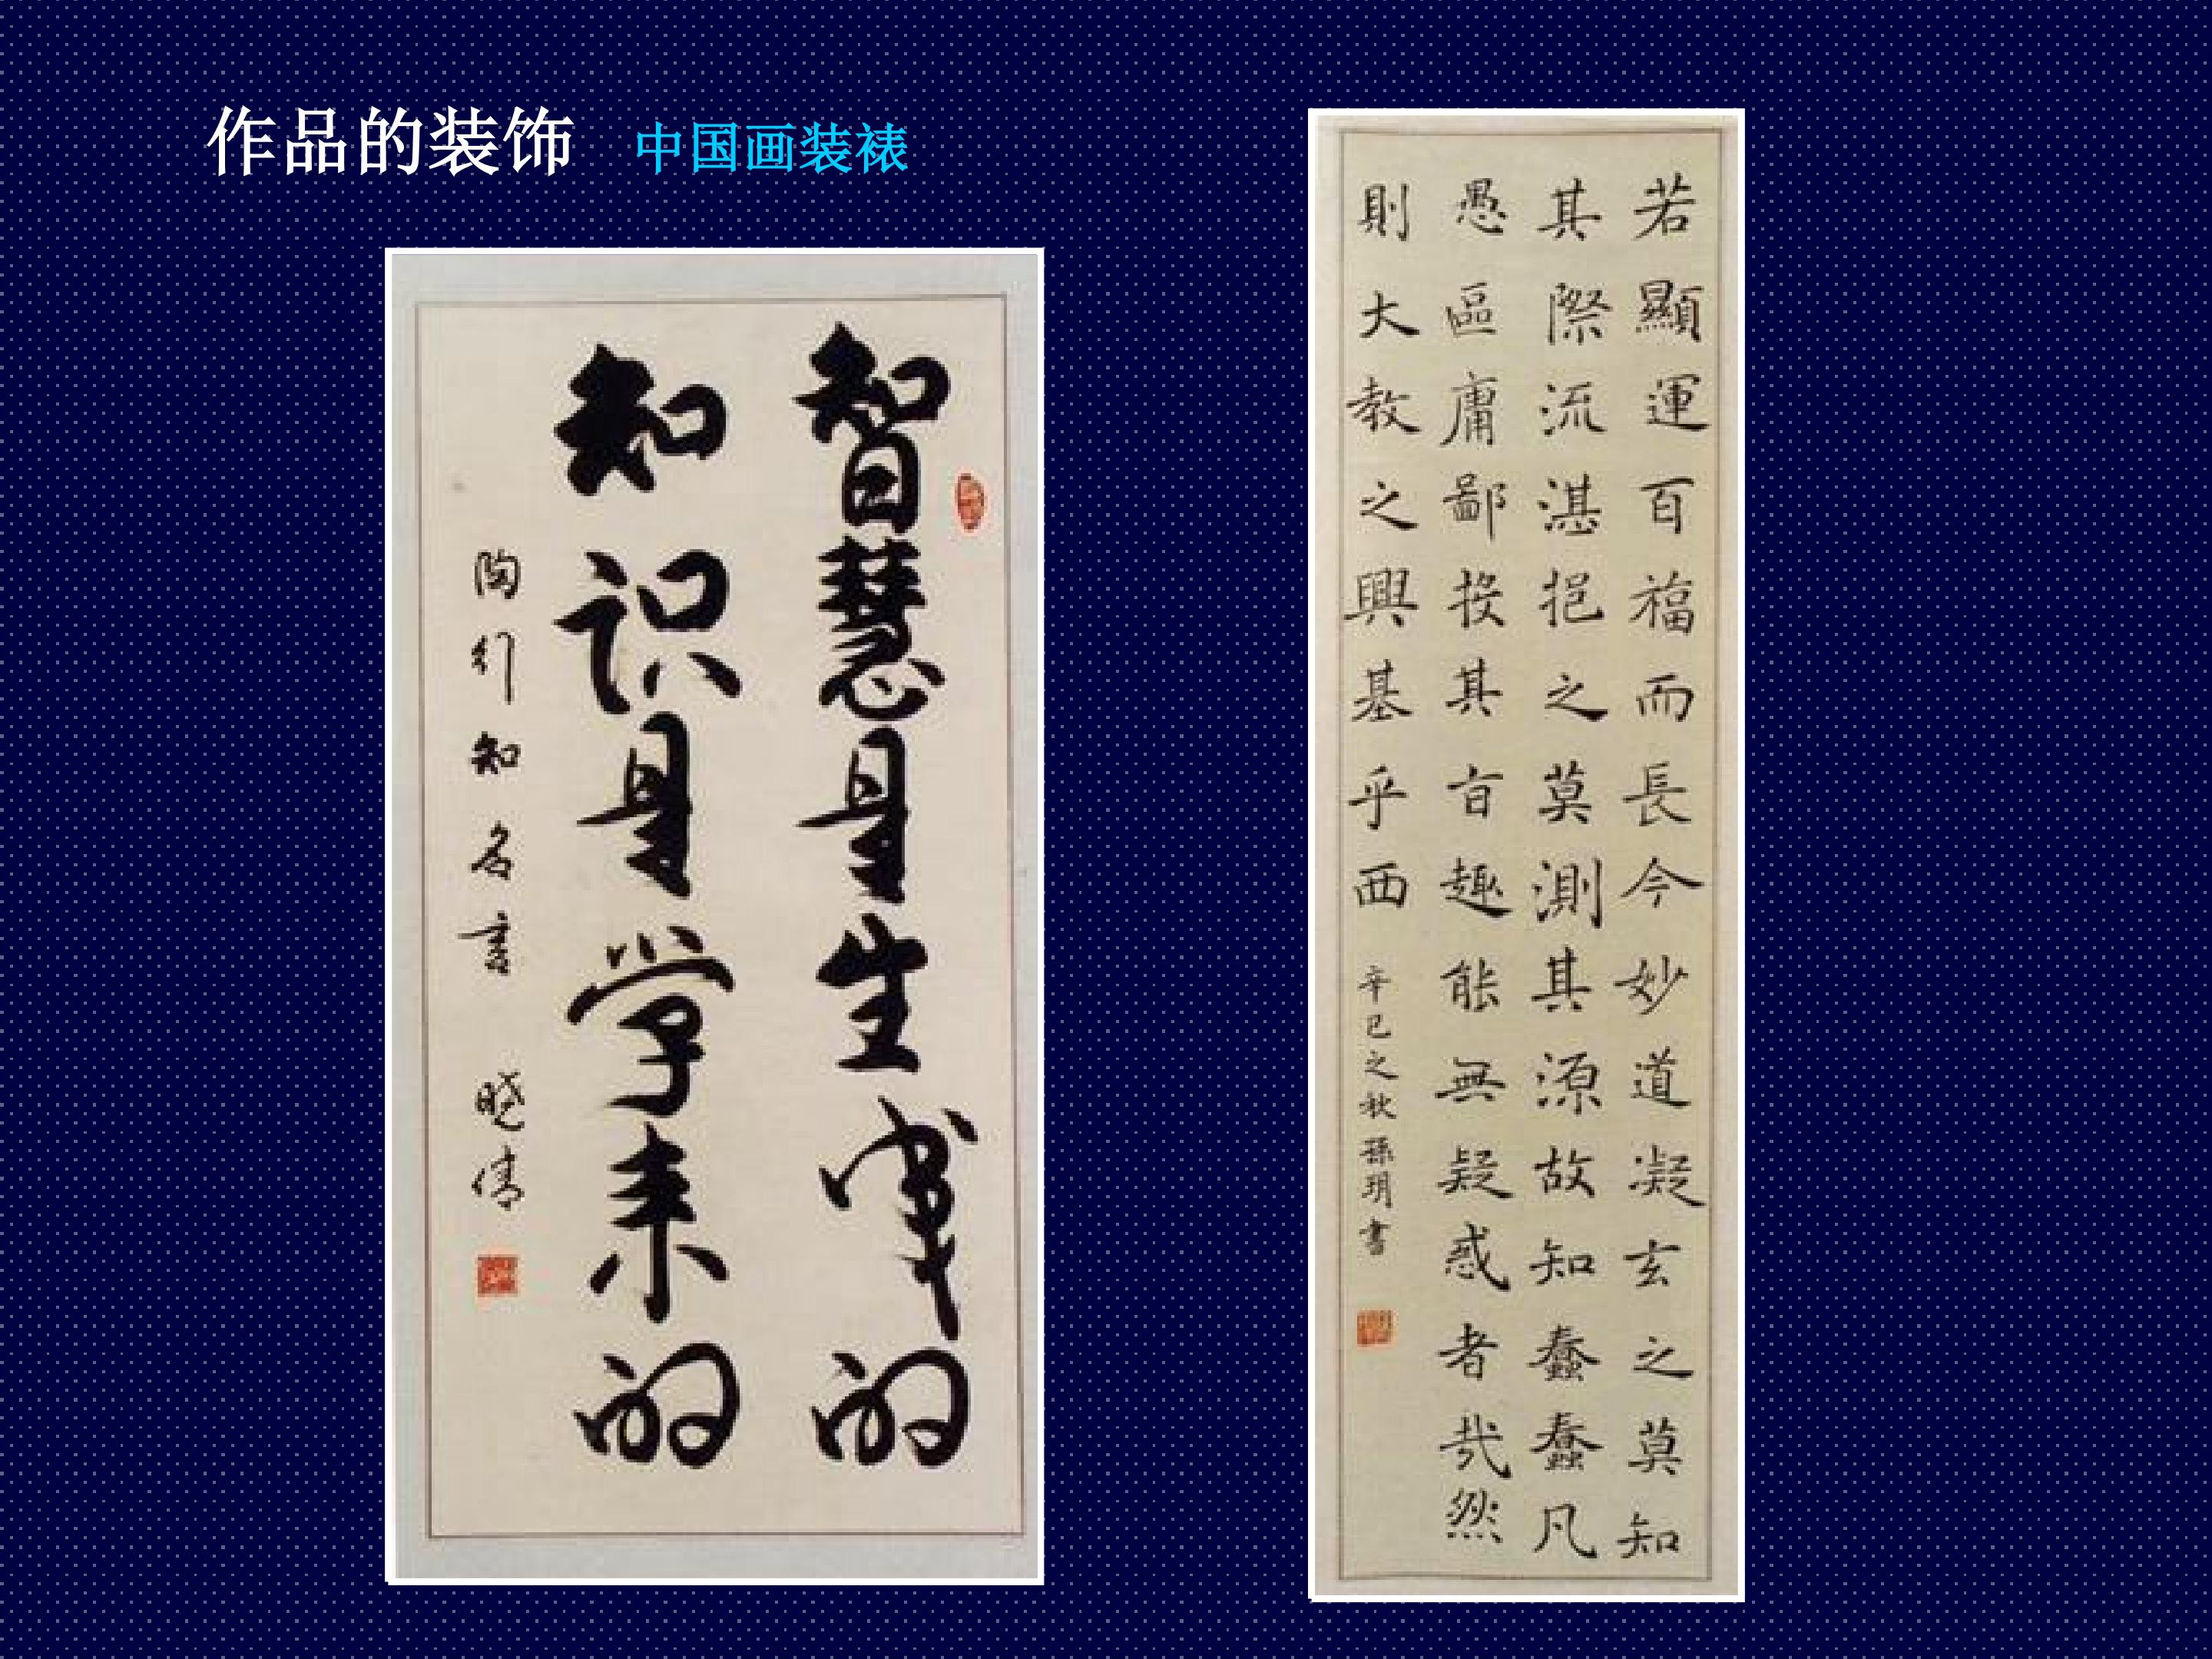 作品的装饰 中国画装裱
智慧是生成的
知识是学来的
陶行知名言 晓倩
若顯運百福而長今妙道凝玄之莫知
其際流湛挹之莫測其源故知蠢蠢凡
愚區庸鄙投其旨趣能無疑惑者哉然
則大教之興基乎西 辛巳之秋孫玥書